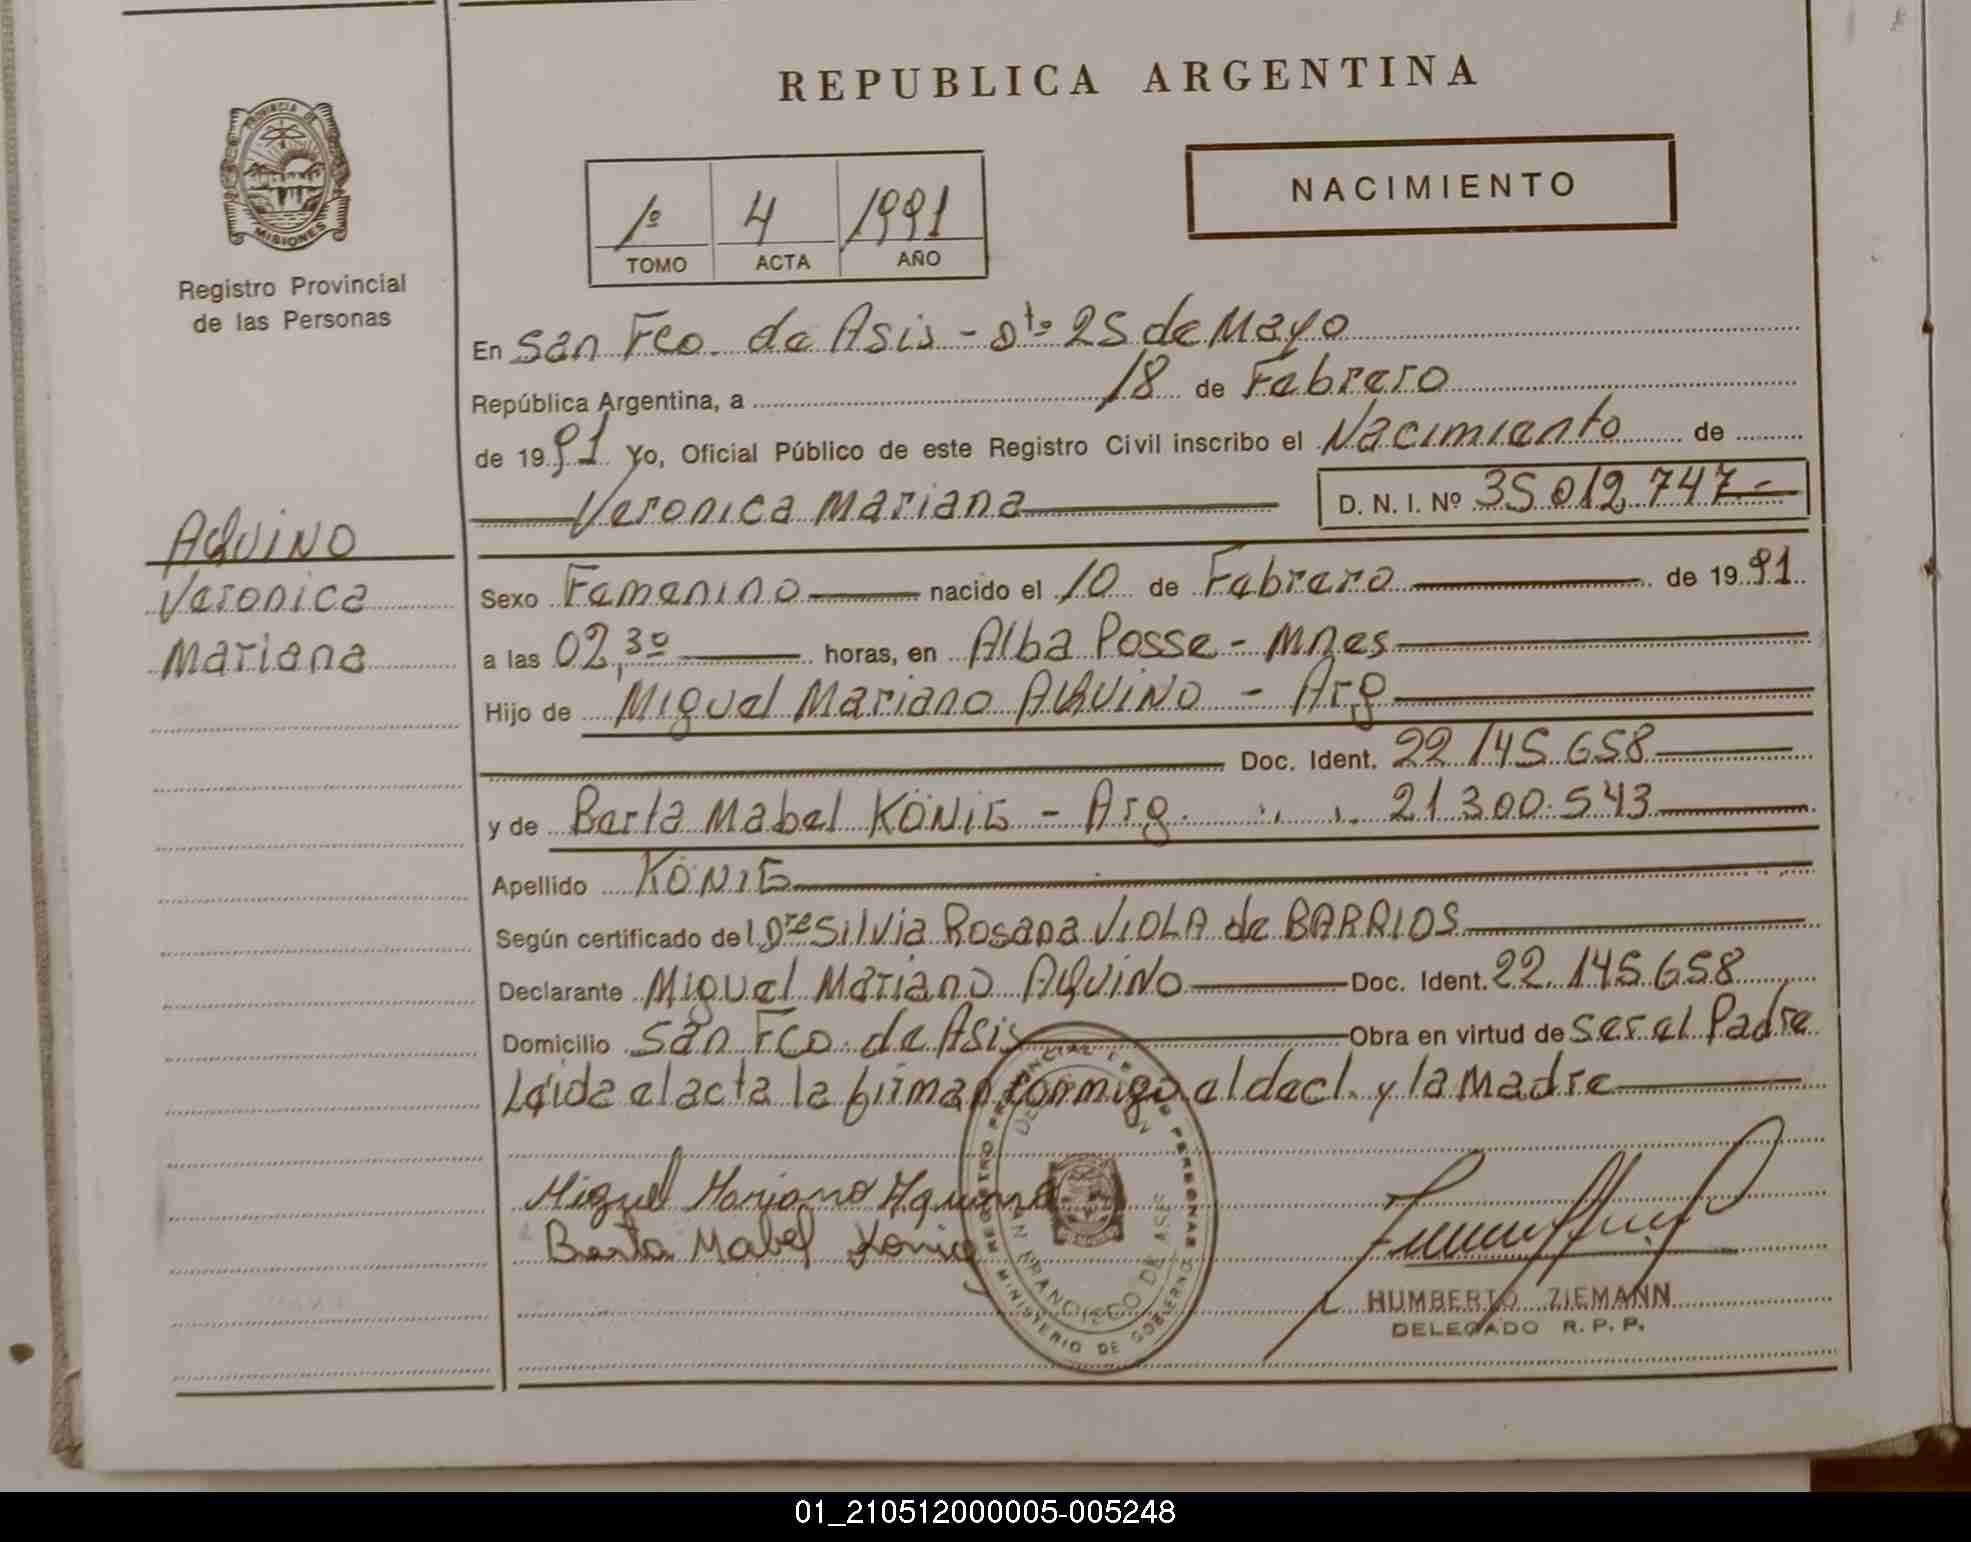 REPUBLICA ARGENTINA
PROVINCIA DE
MISIONES
Registro Provincial
de las Personas
NACIMIENTO
1º 4 1991
TOMO ACTA AÑO
En San Fco. de Asis - Dto 25 de Mayo
República Argentina, a 18 de Febrero
de 1991 Yo, Oficial Público de este Registro Civil inscribo el Nacimiento de
Veronica Mariana D. N. I. Nº 35.012.747-
AQUINO
Veronica
Mariana
Sexo Femenino nacido el 10 de Febrero de 1991
a las 02,30 horas, en Alba Posse - Mnes
Hijo de Miguel Mariano AQUINO - Arg
Doc. Ident. 22.145.658
y de Berta Mabel KÖNIG - Arg. " " 21.300.543
Apellido KÖNIG
Según certificado del Dra Silvia Rosana VIOLA de BARRIOS
Declarante Miguel Mariano AQUINO Doc. Ident. 22.145.658
Domicilio San Fco. de Asis Obra en virtud de ser el Padre
Leida el acta la firman conmigo el decl. y la Madre
Miguel Mariano Aquino
Berta Mabel König
REGISTRO PROVINCIAL DE LAS PERSONAS
MINISTERIO DE GOBIERNO
DELEGACION
SAN FRANCISCO DE ASIS
HUMBERTO ZIEMANN
DELEGADO R. P. P.
01_210512000005-005248